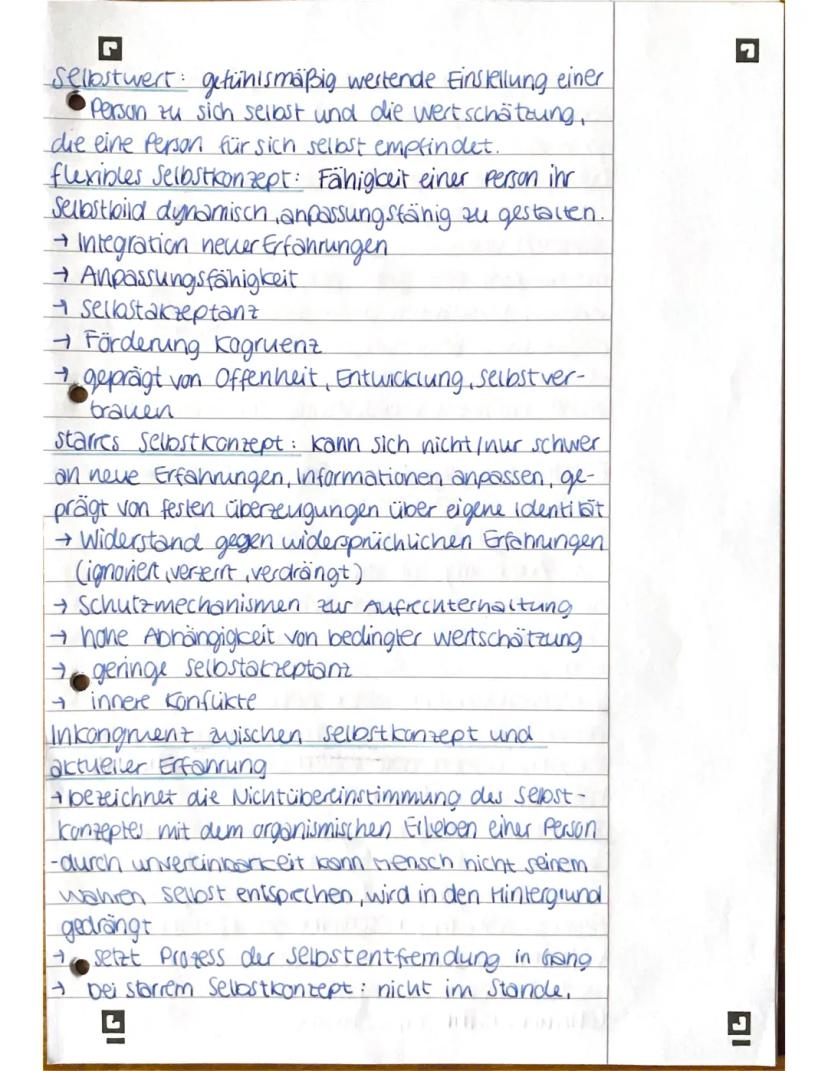 Selbstwert: gefühlsmäßig wertende Einstellung einer
Person zu sich selbst und die Wertschätzung,
die eine Person für sich selbst empfindet.
flexibles Selbstkonzept: Fähigkeit einer Person ihr
Selbstbild dynamisch, anpassungsfähig zu gestalten.
→ Integration neuer Erfahrungen
→ Anpassungsfähigkeit
→ Selbstakzeptanz
→ Förderung Kogruenz
→ geprägt von Offenheit, Entwicklung, Selbstver-
trauen
starres Selbstkonzept: kann sich nicht/nur schwer
an neue Erfahrungen, Informationen anpassen, ge-
prägt von festen überzeugungen über eigene Identität
→ Widerstand gegen widersprüchlichen Erfahrungen
(ignoriert, verzerrt, verdrängt)
→ Schutzmechanismen zur Aufrechterhaltung
→ hohe Abhängigkeit von bedingter Wertschätzung
→ geringe Selbstakzeptanz
→ innere Konflikte
Inkongruenz zwischen Selbstkonzept und
aktueller Erfahrung
→ bezeichnet die Nichtübereinstimmung des Selbst-
konzeptes mit dem organismischen Erleben einer Person
-durch unvereinbarkeit kann Mensch nicht seinem
wahren Selbst entsprechen, wird in den Hintergrund
gedrängt
→ setzt Prozess der Selbstentfremdung in Gang
→ bei starrem Selbstkonzept: nicht im Stande,